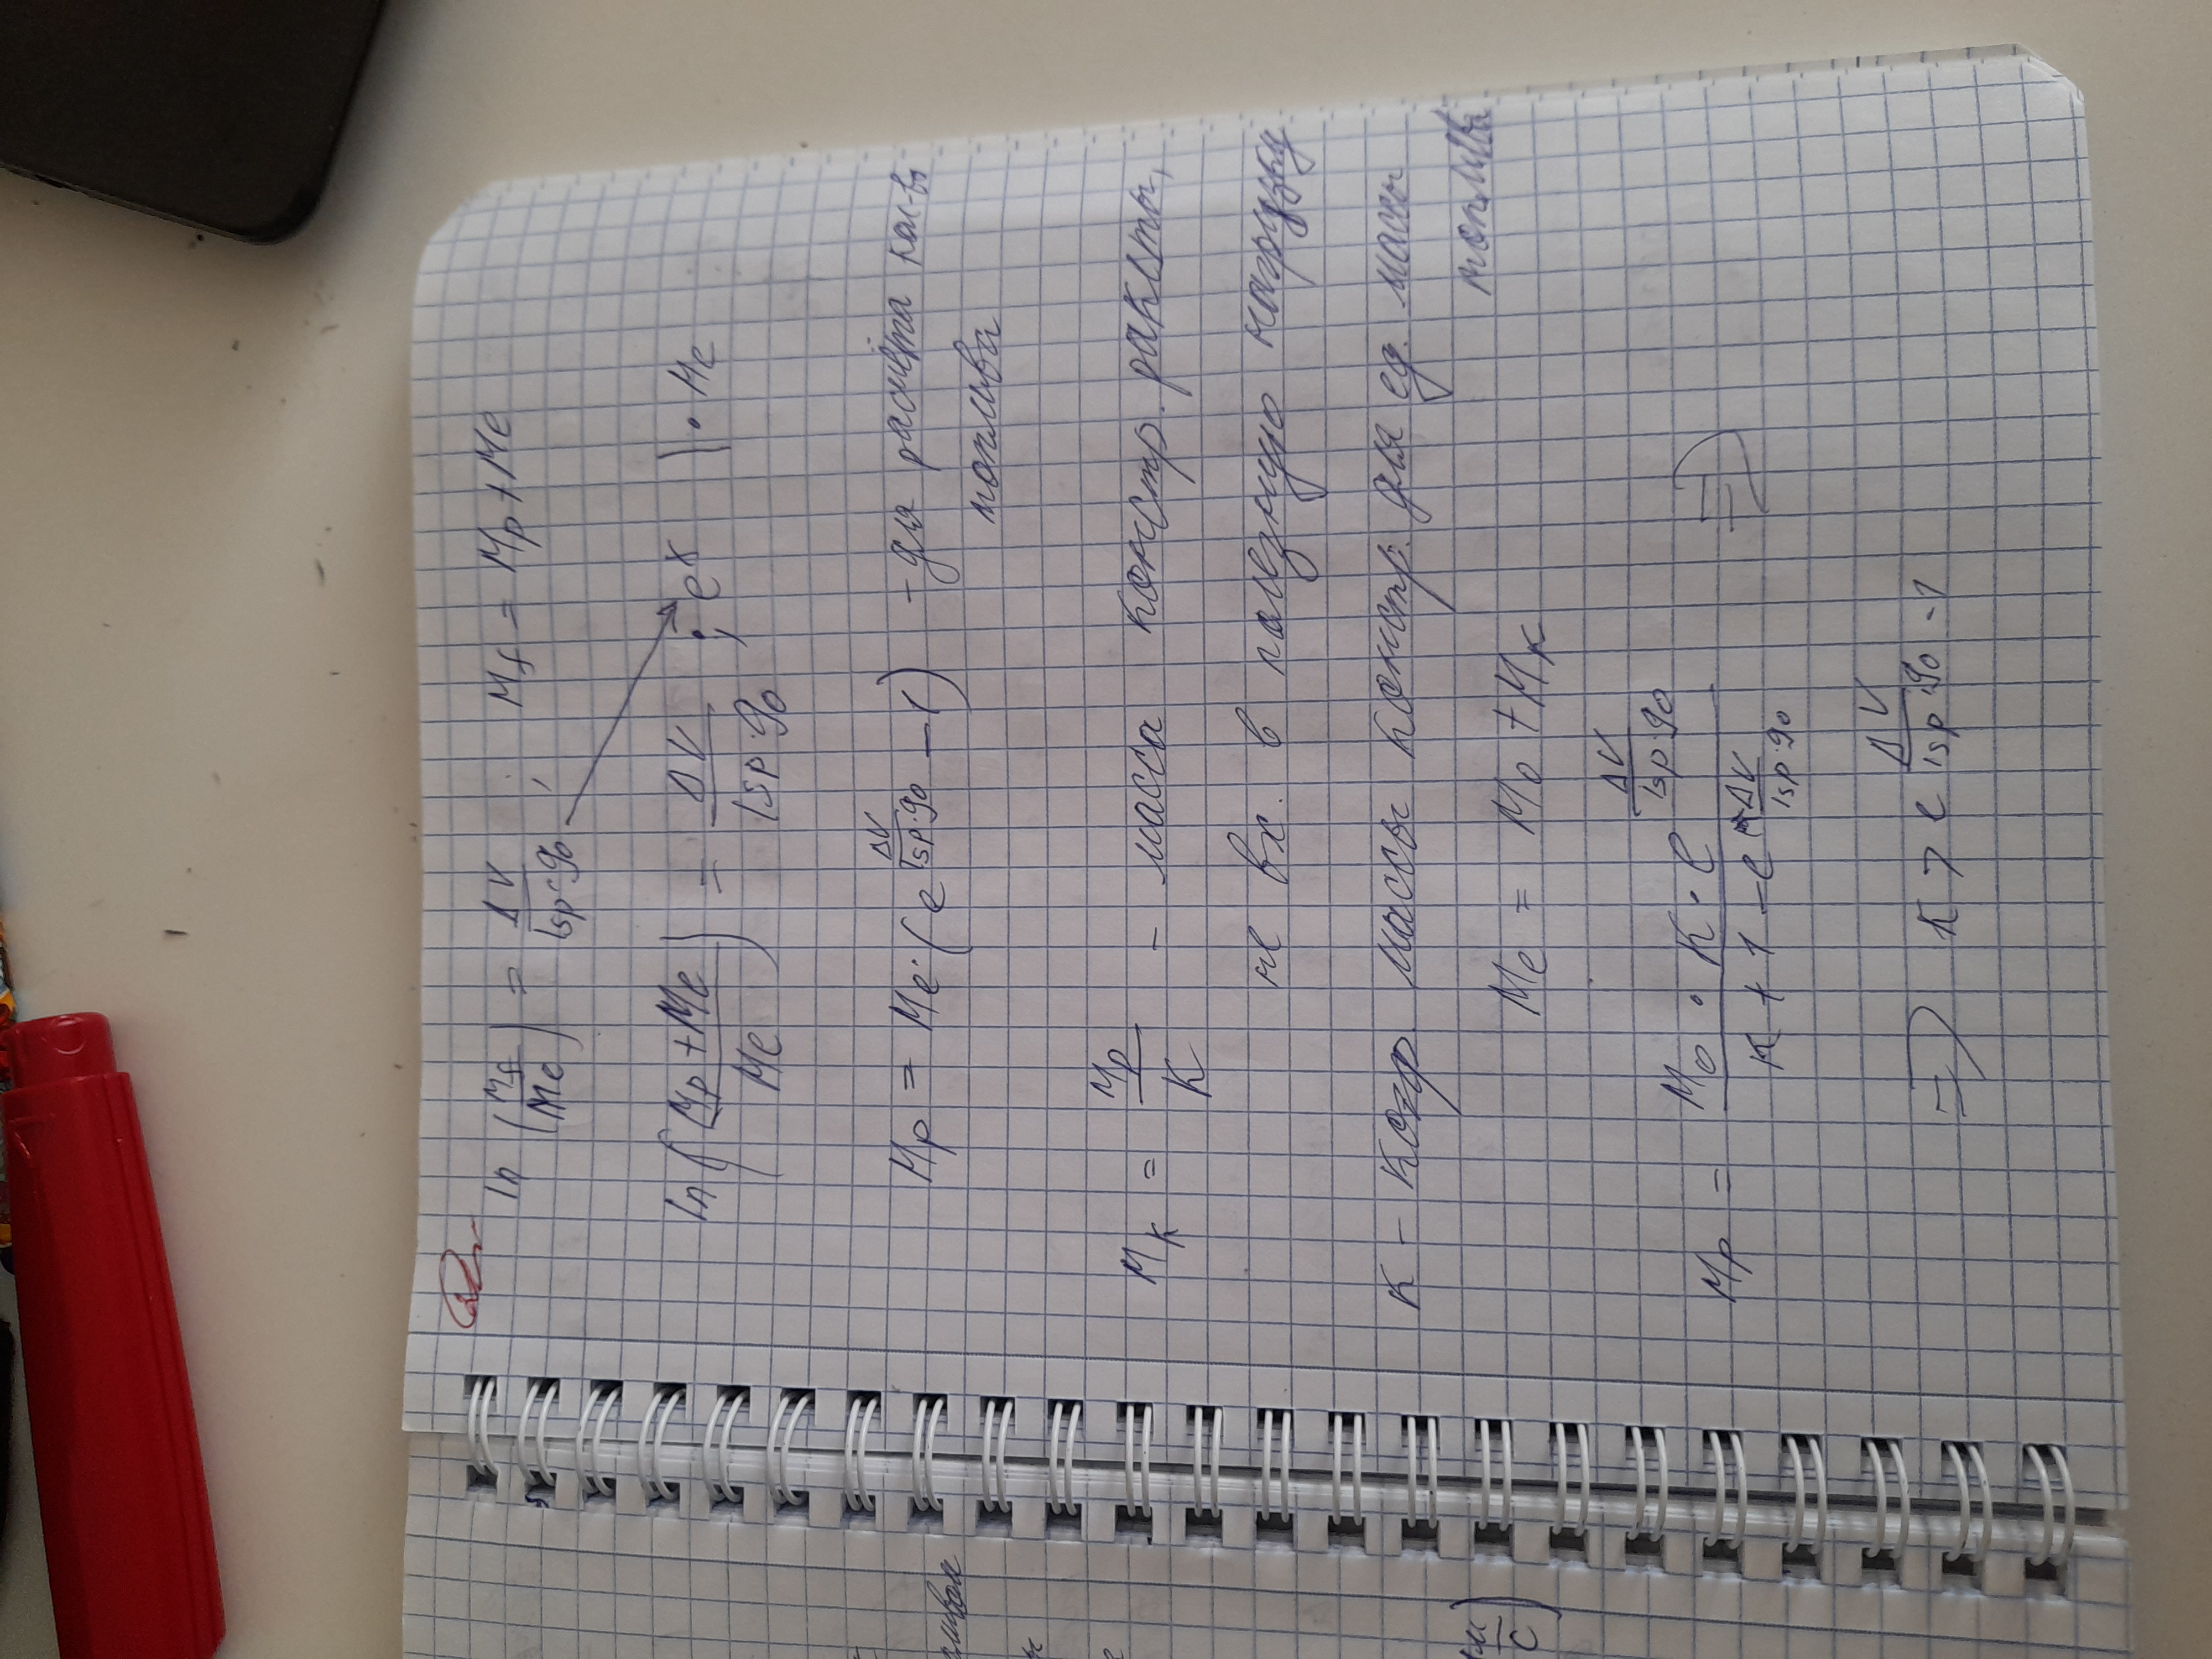 ln (Mf/Me) = ΔV/(Isp·g0) ; Mf = Mp + Me
ln ((Mp + Me)/Me) = ΔV/(Isp·g0) ; e^x | · Me
Mp = Me·(e^(ΔV/(Isp·g0)) − 1) – для расчёта кол-ва
топлива
Mк = Mp/K – масса констр. ракеты,
не вх. в полезную нагрузку
К – коэф. массы констр. для ед. массы
топлива
Me = M0 + Mк
Mp = (M0 · K · e^(ΔV/(Isp·g0)))/(K + 1 − e^(ΔV/(Isp·g0))) =>
=> K > e^(ΔV/(Isp·g0)) − 1
м/с)